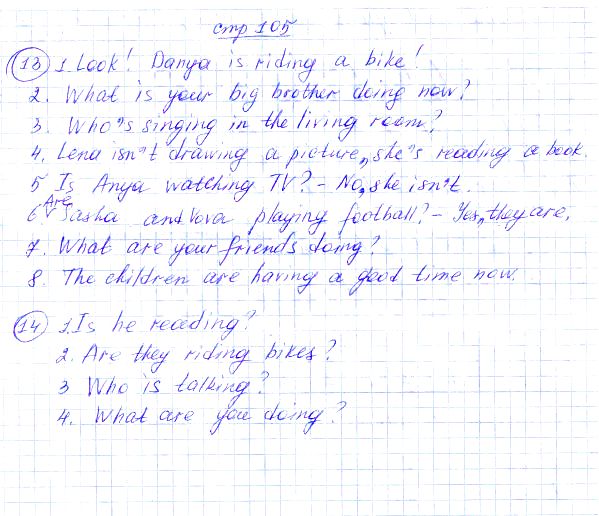 стр 105
13 1. Look! Danya is riding a bike!
2. What is your big brother doing now?
3. Who's singing in the living room?
4. Lena isn't drawing a picture, she's reading a book.
5 Is Anya watching TV? - No, she isn't.
6 Are Sasha and Vova playing football? - Yes, they are.
7. What are your friends doing?
8. The children are having a good time now.
14 1. Is he reading?
2. Are they riding bikes?
3 Who is talking?
4. What are you doing?